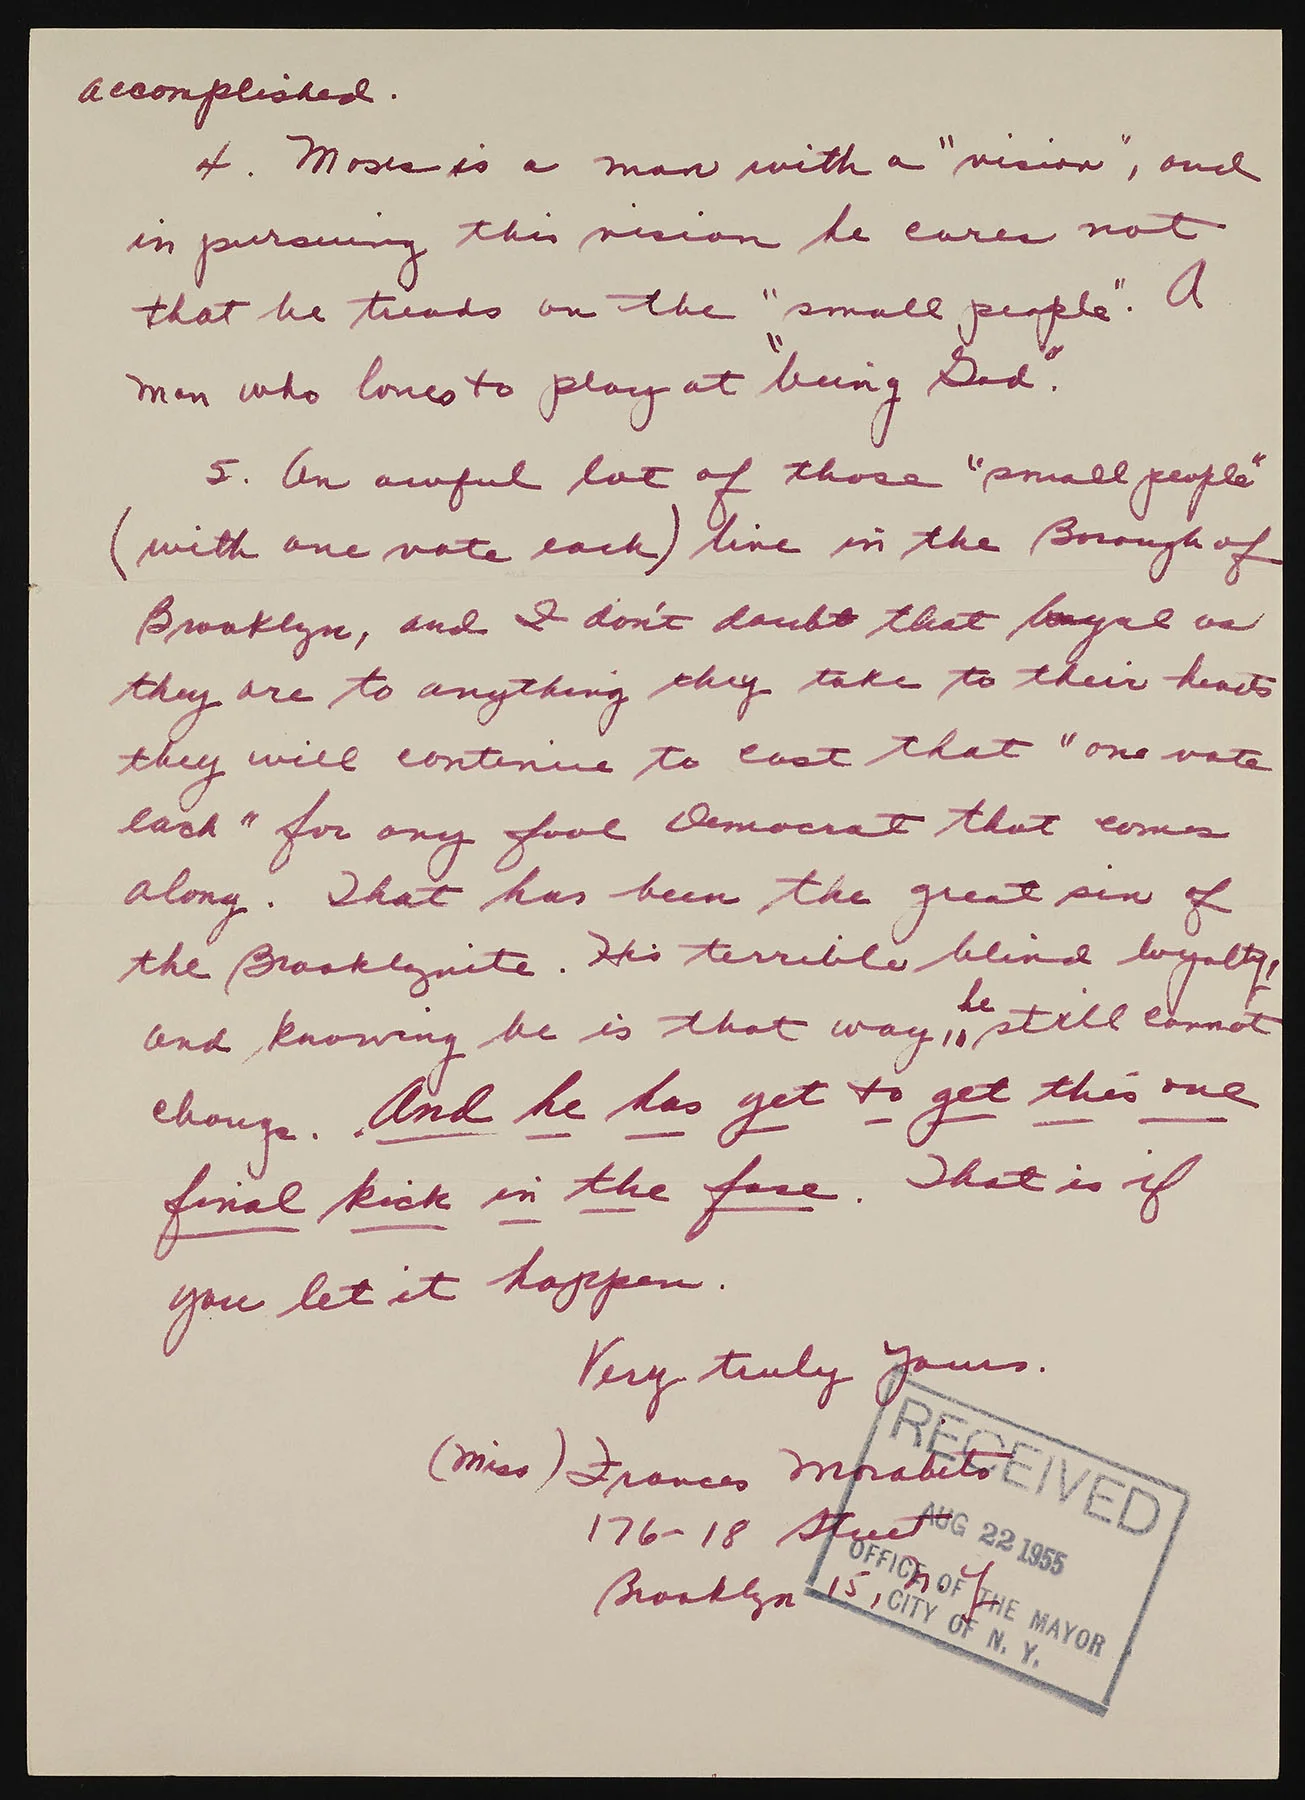 accomplished.
4. Moses is a man with a "vision", and
in pursuing this vision he cares not
that he treads on the "small people". A
man who loves to play at "being God".
5. An awful lot of those "small people"
(with one vote each) live in the Borough of
Brooklyn, and I don't doubt that loyal as
they are to anything they take to their hearts
they will continue to cast that "one vote
each" for any fool Democrat that comes
along. That has been the great sin of
the Brooklynite. His terrible blind loyalty!
and knowing he is that way, he still cannot
change. And he has yet to get this one
final kick in the face. That is if
you let it happen.
Very truly yours.
(Miss) Frances Morabito
176-18 Street
Brooklyn 15, N.Y.
RECEIVED
AUG 22 1955
OFFICE OF THE MAYOR
CITY OF N. Y.